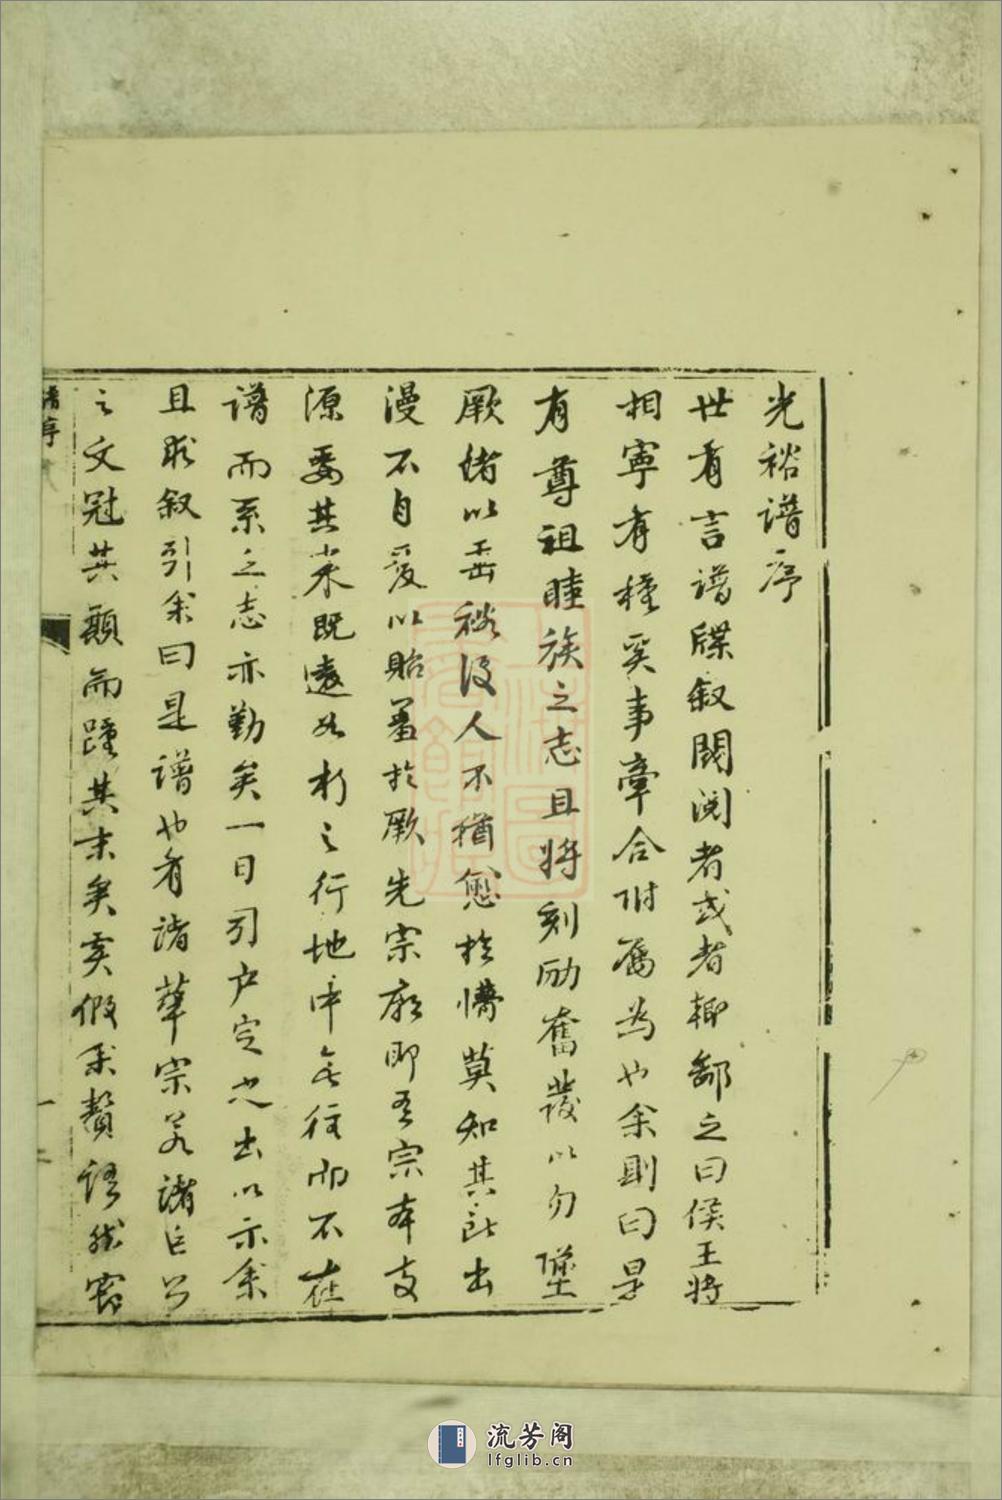 光裕譜序
世有言譜牒叙閥閱者或者輒鄙之曰侯王將
相寧有種奚事牽合附屬為也余則曰是
有尊祖睦族之志且將刻勵奮發以勿墜
厥緒以垂裕後人不猶愈於懵莫知其所出
漫不自愛以貽羞於厥先宗廟即吾宗本支
源委其来既遠如水之行地中無往而不在
譜而系之志亦勤矣一日引户定光出以示余
且求叙引余曰是譜也有諸華宗名諸巨公
之文冠其顛而踵其末矣奚假余贅語然
譜序
流芳阁
lfglib.cn